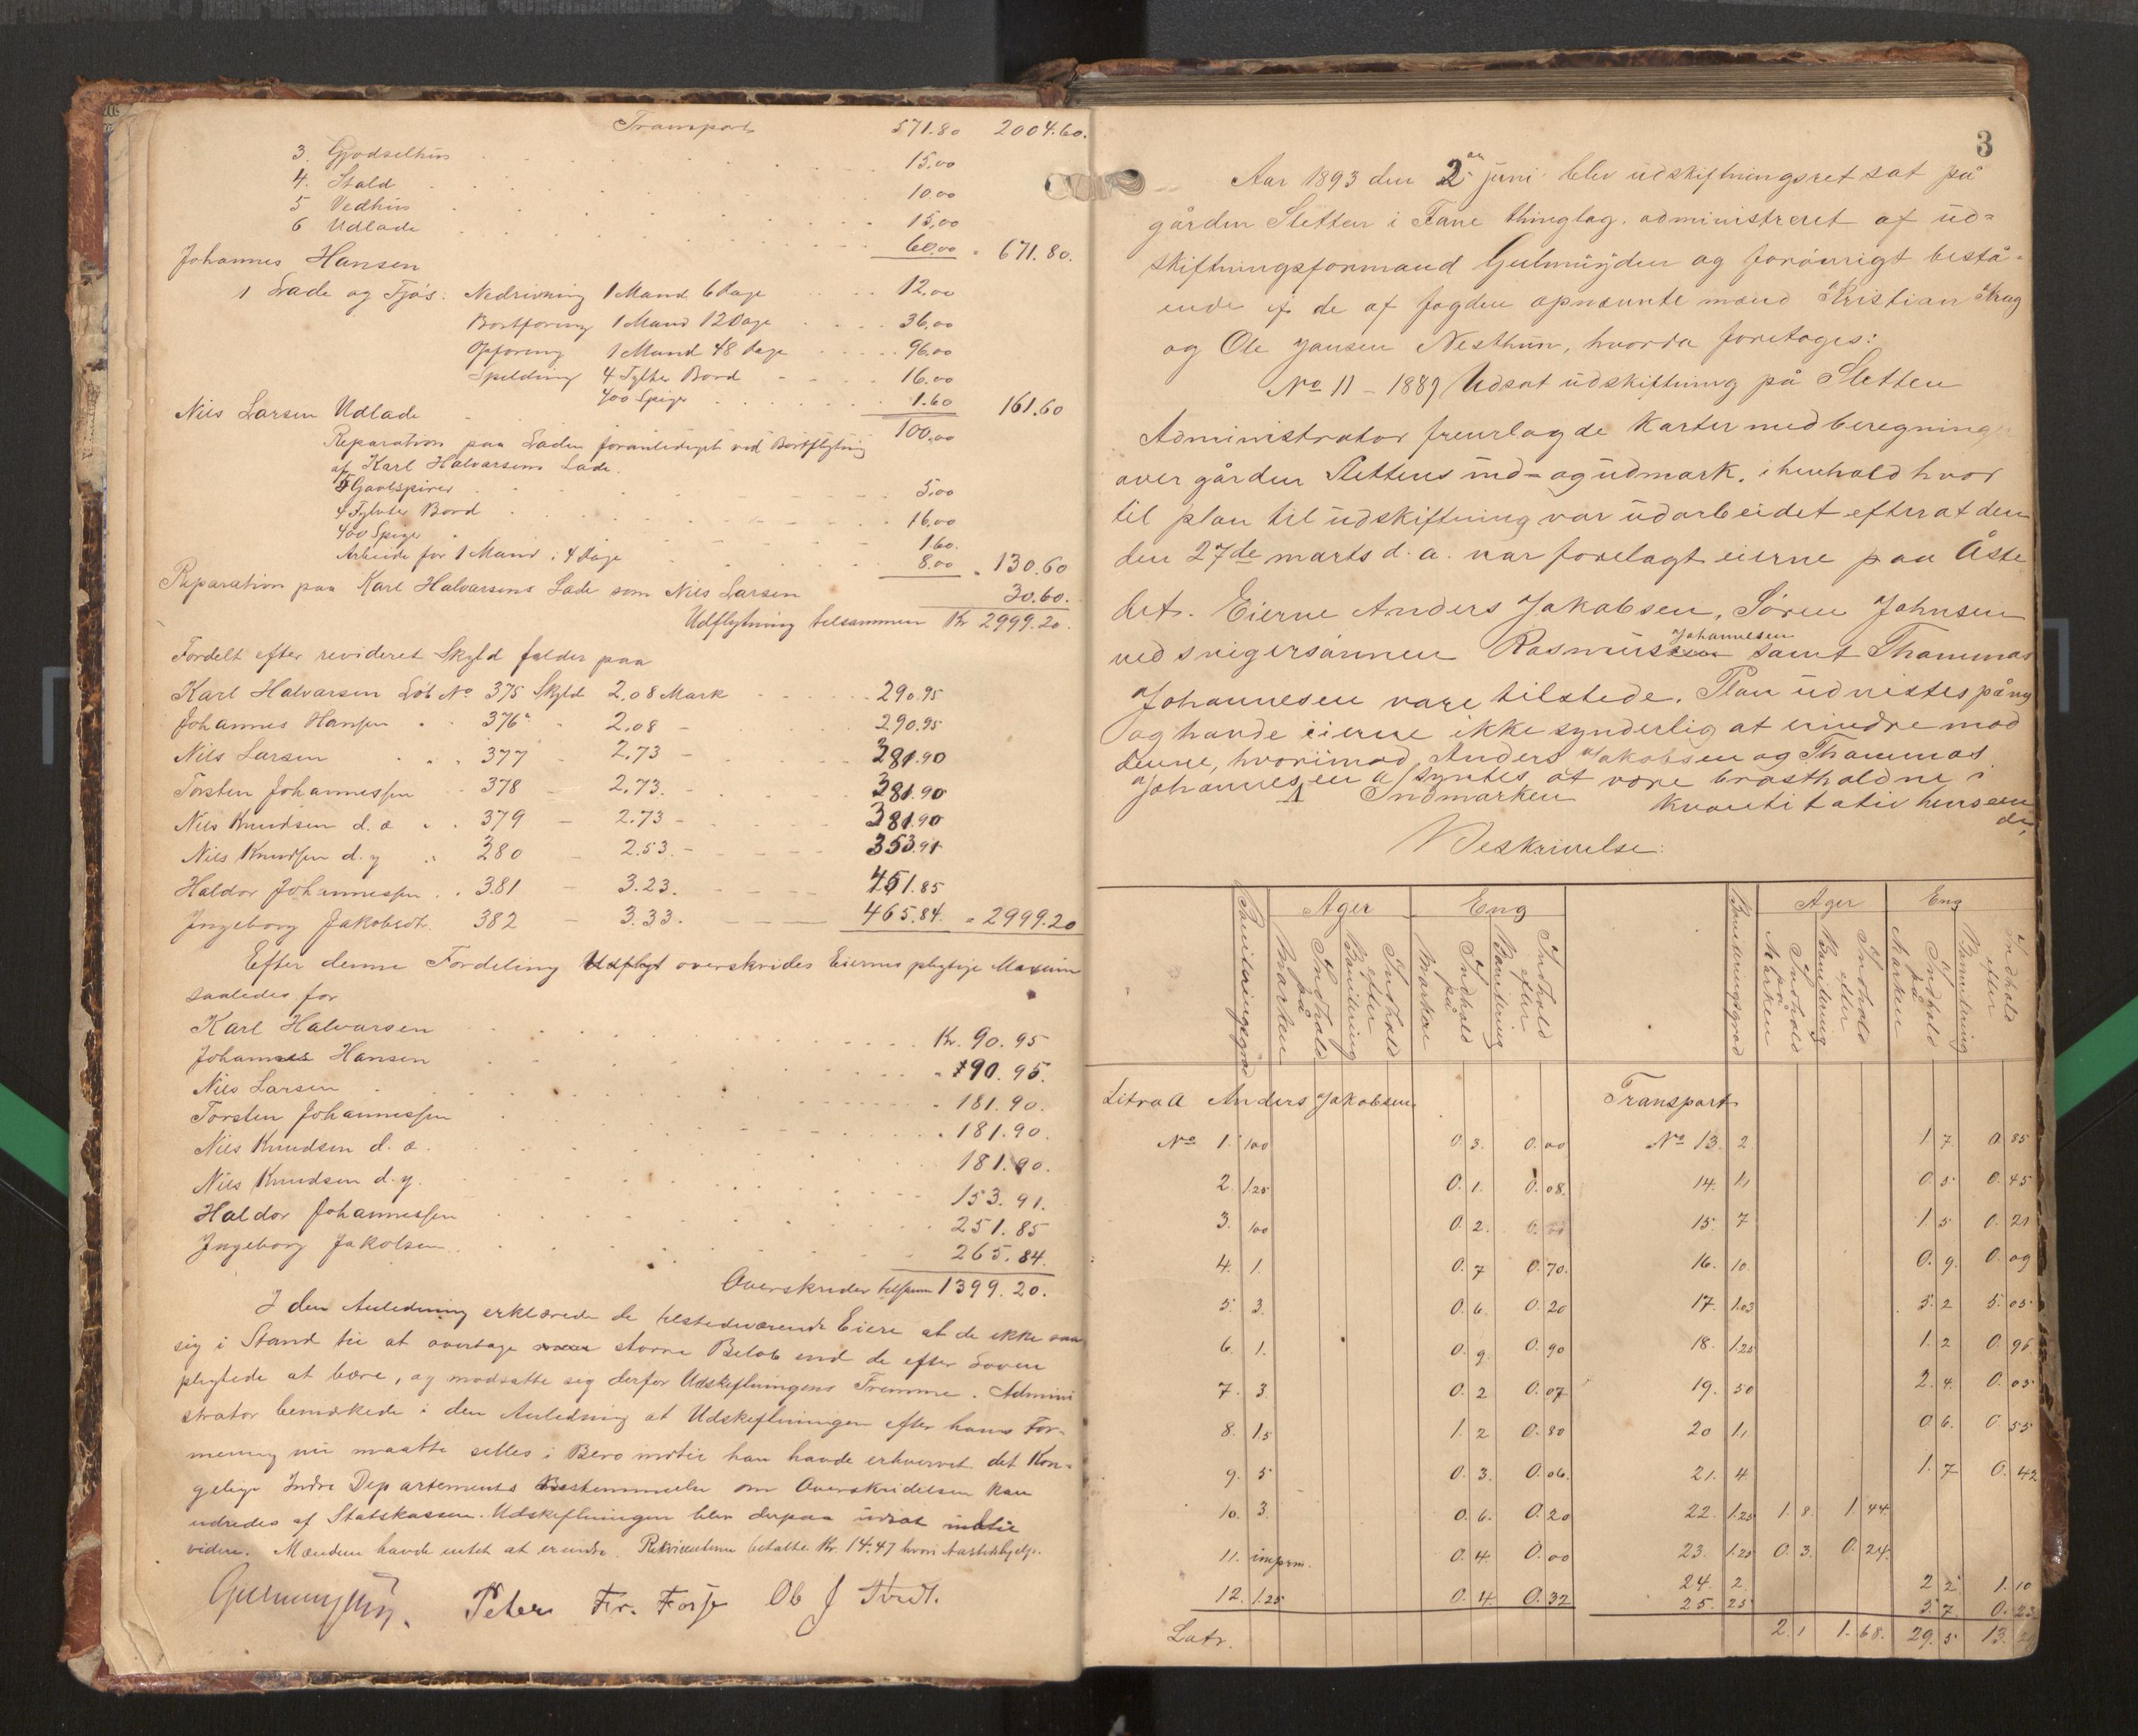 Transport 571.80 2004.60.
3. Gjødselhus 15,00
4. Stald 10.00
5 Vedhus 15,00
6 Udlade 60,00 - 671.80.
Johannes Hansen
1 Lade og Fjøs: Nedrivning 1 Mand 6 Dage 12,00
Bortføring 1 Mand 12 Dage 36,00
Opføring 1 Mand 48 Dage 96.00
Spilding 4 Tylter Bord 16.00
400 Spiger 1.60 161.60
Nils Larsen Udlade 100,00
Reparation paa Laden foranlediget ved Bortflytning
af Karl Halvarsens Lade.
Gavlspirer 5,00
4 Tylvter Bord 16,00
400 Spiger 1.60.
Arbeide for 1 Mand i 4 Dage 8.00 - 130.60
Reparation paa Karl Halvarsens Lade som Nils Larsen 30.60.
Udflytning tilsammen Kr 2999.20.
Fordelt efter revideret Skyld falder paa
Karl Halvarsen Løb No 375 Skyld 2,08 Mark 290.95
Johannes Hansen " 376a - 2,08 - 290.95
Nils Larsen " 377 - 2,73 - 381.90
Torsten Johannessen " 378 - 2,73. 381.90
Nils Knudsen d. æ " 379 - 2.73 - 381.90
Nils Knudsen d. y " 280 - 2.53.- 353.91
Haldor Johannessen " 381 - 3.23. 451.85
Ingeborg Jakobsdt. 382 - 3.33. 465.84. = 2999.20
Efter denne Fordeling overskrides Eiernes pligtige Maxim
saaledes for
Karl Halvarsen Kr. 90.95
Johannes Hansen - 90.95.
Nils Larsen - 181.90.
Torsten Johannessen - 181.90.
Nils Knudsen d. æ. 181.90.
Nils Knudsen d. y. 153.91.
Haldor Johannessen 251.85
Ingeborg Jakobsen 265.84.
Overskrider tilsam 1399.20.
I den Anledning erklærede de tilstedeværende Eiere at de ikke saa
sig i Stand til at overtage større Beløb end de efter Loven
pligtede at bære, og modsatte sig derfor Udskiftningens Fremme. Admini
strator bemærkede i den Anledning at Udskiftningen efter hans For-
mening nu maatte stilles i Bero indtil han havde erhvervet det Kon-
gelige Indre Departements Bestemmelse om Overskridelsen kan
udredes af Statskassen. Udskiftningen blev derpaa udsat indtil
videre. Mændene havde intet at erindre. Rekvirenterne betalte Kr. 14.47 hvori
Peter Fr. Ob J
3
Aar 1893 den 2den juni blev udskiftningsret sat på
gården Sletten i Fane thinglag. administreret af ud=
skiftningsformand Gulmuyden og forøvrigt bestå-
ende af de af fogden opnævnte mænd Kristian Krag
og Ole Jansen Nesthun, hvorda foretoges:
No 11 - 1889 Udsat udskiftning på Sletten
Administrator fremlagde karter med beregning
over gården Slettens ind= og udmark, i henhold hvor
til plan til udskiftning var udarbeidet efterat den
den 27de marts d. a. var forelagt eierne paa Åste
det. Eierne Anders Jakobsen, Søren Johnsen
ved svigersønnen Rasmus Johannesen samt Thommas
Johannesen vare tilstede. Plan udvistes påny
og havde eierne ikke synderlig at erindre mod
denne, hvorimod Anders Jakobsen og Thommas
Johannesen syntes at være brøstholdne i
Indmarken kvantitativ henseen
de,
Beskrivelse:
Boniteringsgrad Ager Eng Boniteringsgrad Ager Eng
Indhold på Marken Indhold efter Bonitering Indhold på Marken Indhold efter Bonitering Indhold på Marken Indhold efter Bonitering Indhold på Marken Indhold efter Bonitering
Litra A Anders Jakobsen Transport
No 1. 100 0.3. 0.00 No 13. 2. 1.7. 0.85
2. 1.25 0.1. 0.08. 14. 1,1 0.5. 0.45
3. 100 0.2. 15. 7 1.5 0.21
4. 1. 0.7 0.70. 16. 10. 0.9. 0.09
5. 3. 0.6. 0.20 17. 1.03 5.2 5.05
6. 1. 0.9. 0.90 18. 1.25 1.2 0.96
7. 3. 0.2 0.07 19. 50 2.4. 0.05
8. 1.5 1.2 0.80 20 1,1 0.6. 0.55
9. 5 0.3. 0.06. 21. 4. 1.7 0.42
10. 3. 0.6. 0.20 22. 1.25 1.8. 1.44
11. imprm. 0.4. 0.00 23. 1.25 0.3. 0.24.
12. 1.25 0.4. 0.32 24. 2. 2.2 1.10
25. 25 5.7. 0.23
Latr. 2.1 1.68. 29.5 13.